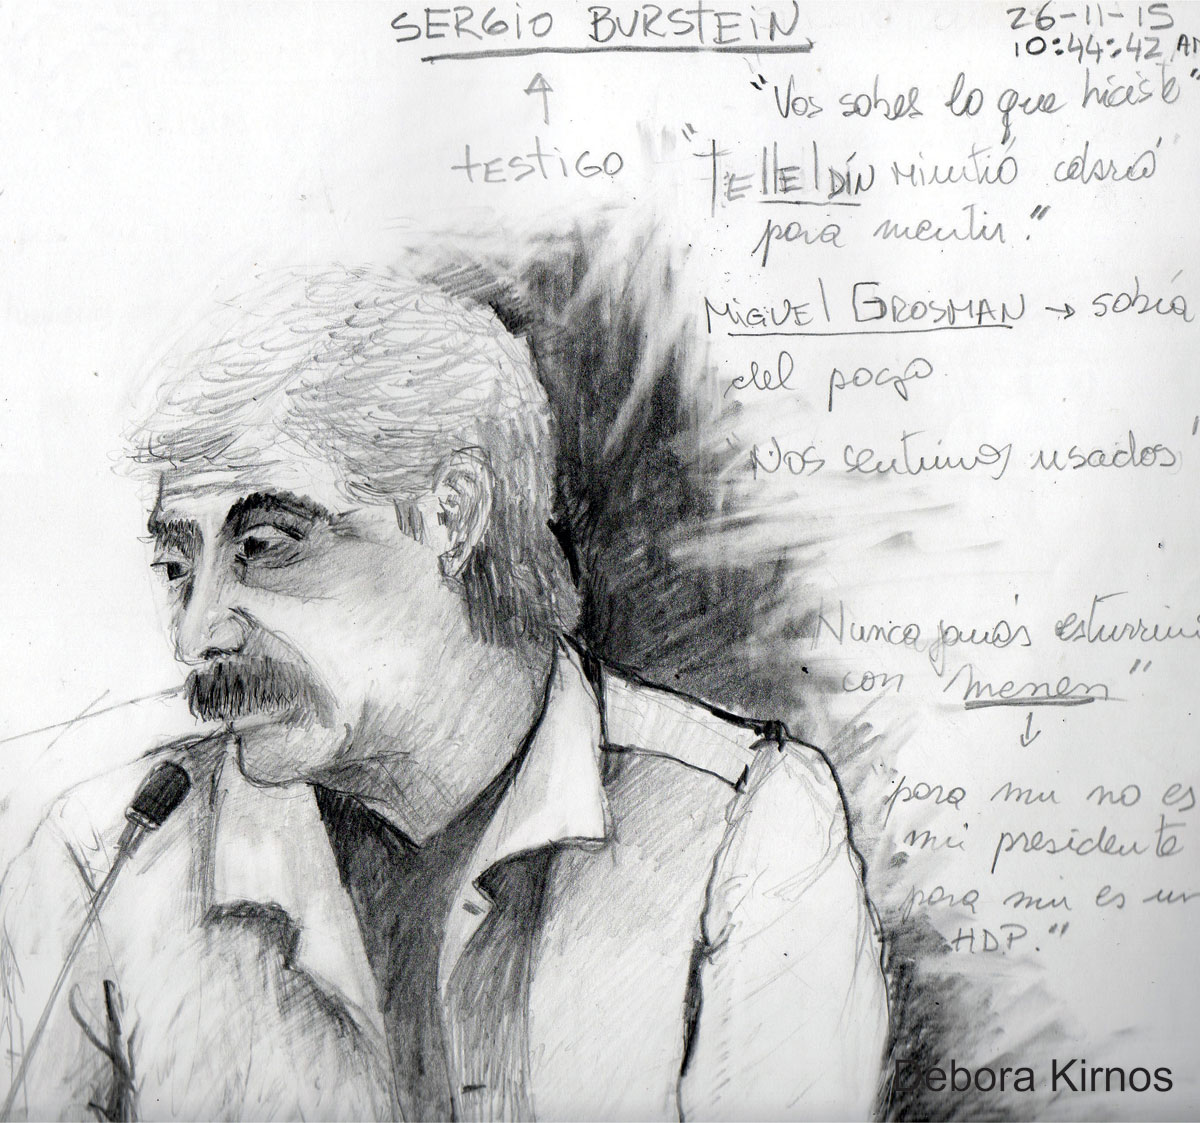 SERGIO BURSTEIN
testigo
26-11-15
10:44:42 AM
"Vos sabes lo que hiciste"
"Telleldín mintió cobró
para mentir."
Miguel Grosman → sabía
del pago
"Nos sentimos usados"
Nunca jamás estuvimos
con Menen"
↓
"para mi no es
mi presidente
para mi es un
HDP."
Debora Kirnos